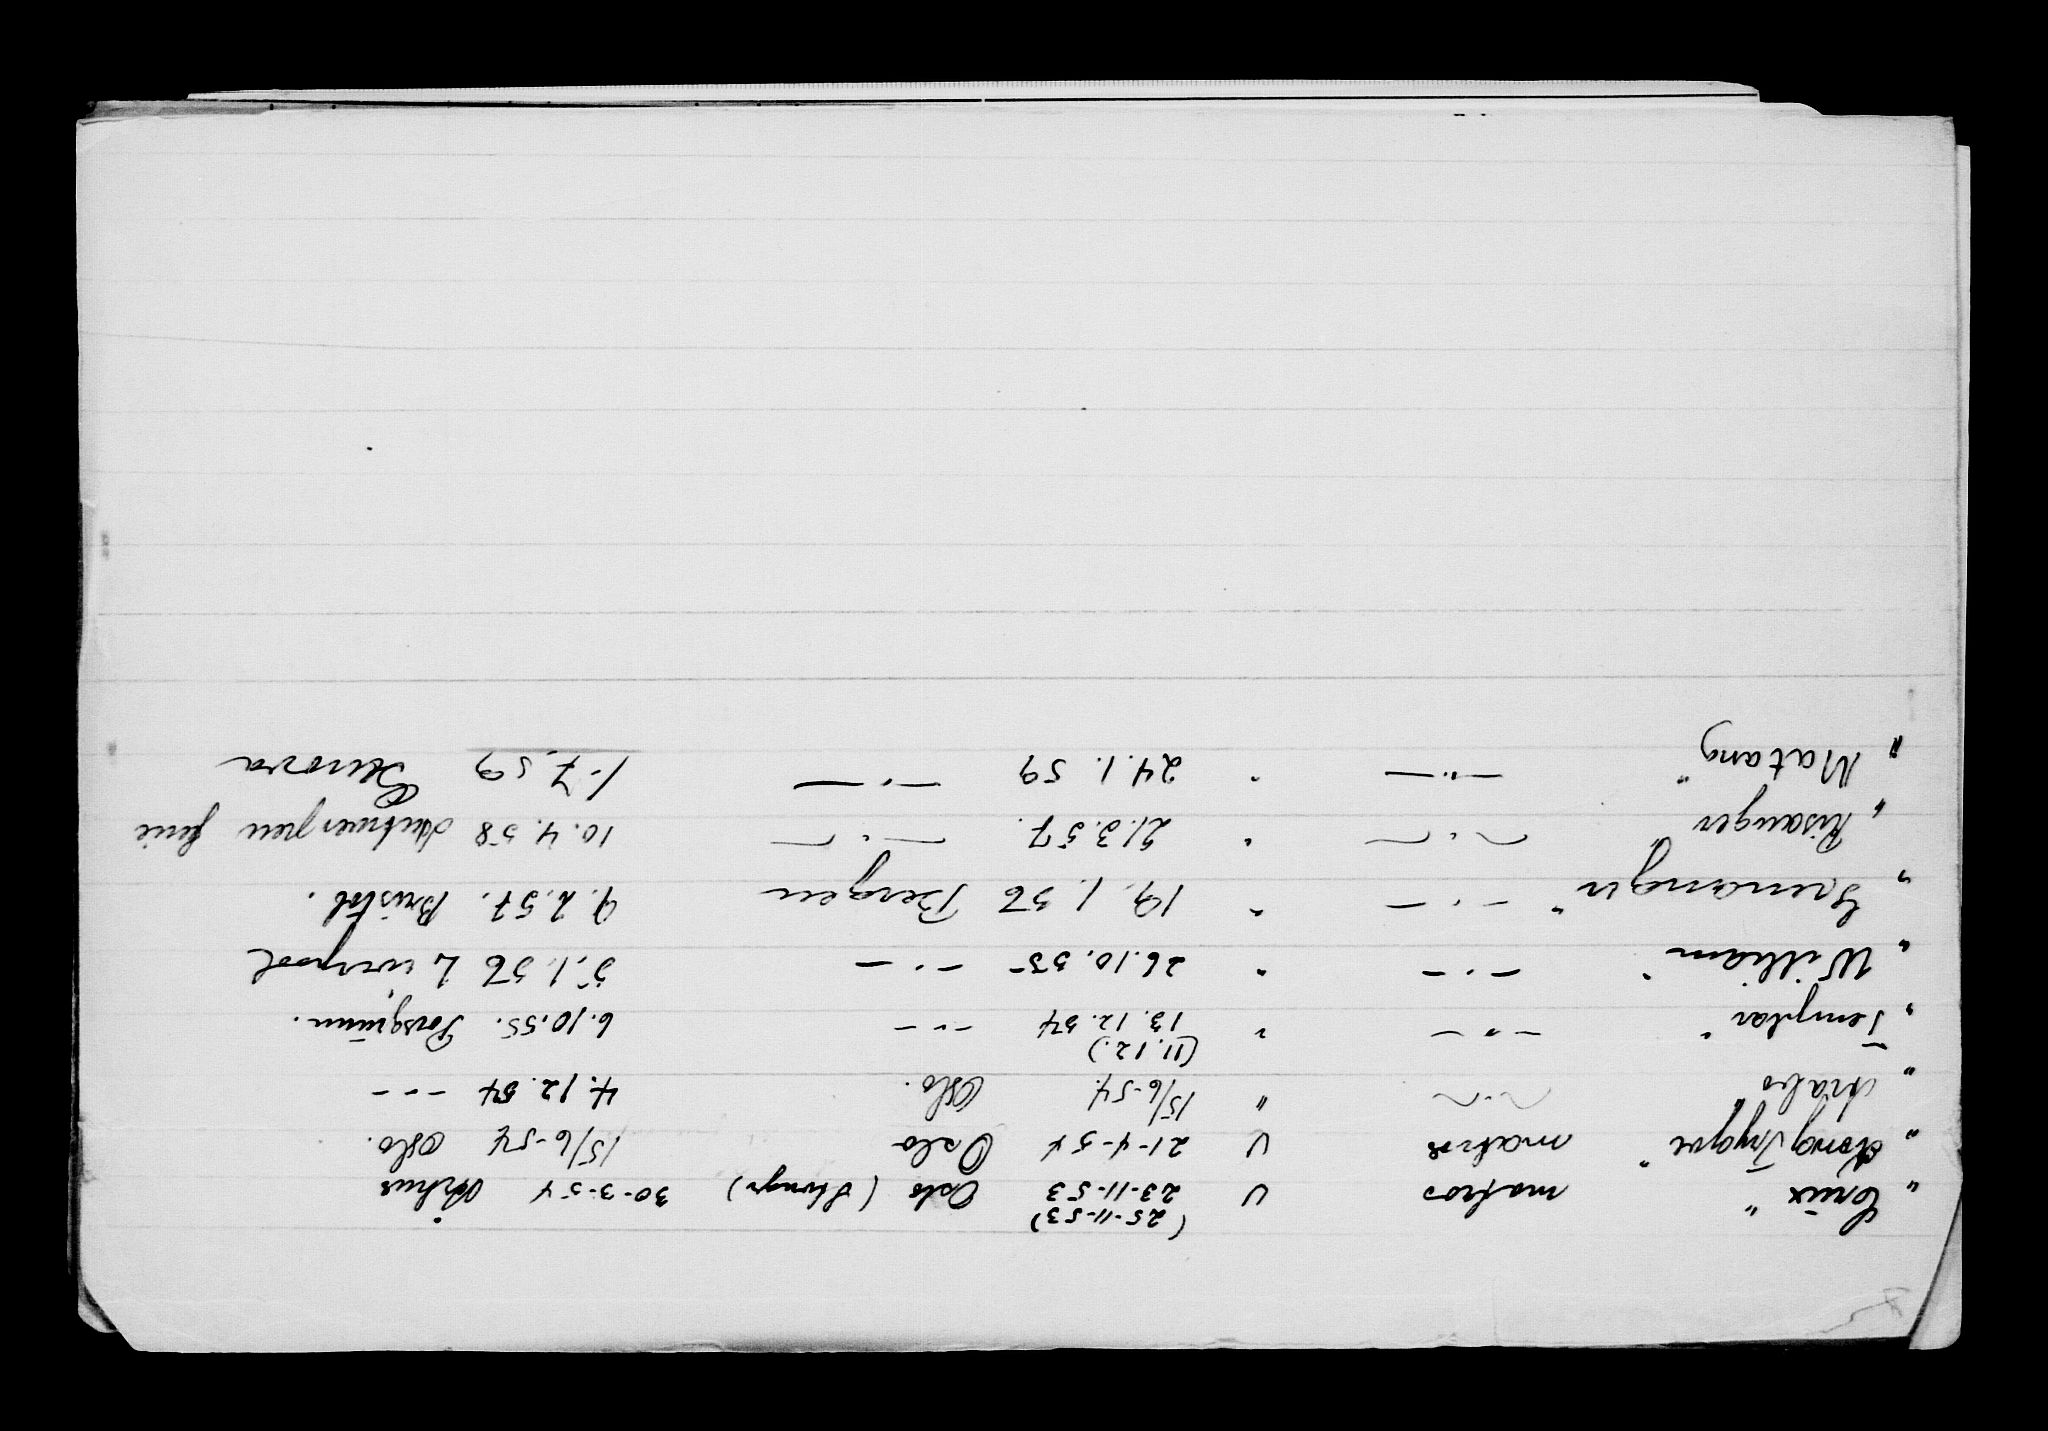 (25-11-53)
"Crux" matros U 23-11-53 Oslo (Stavngr) 30-3-54 Århus
"Kong Tryggve" matros U 21-4-54 Oslo 15/6-54 Oslo.
" " — . — " 15/6-54. Oslo. 4.12.54 - - -
(11.12.)
"Templar" — " — " 13.12.54 - - - 6.10.55. Porsgrunn.
"William" — . — " 26.10.55 — . — 5.1.56 Liverpool
"Grenanger" — . — " 19.1.56 Bergen 9.2.57. Bristol.
"Risanger" — . — " 21.3.57. — . — 10.4.58 Antwerpen
"Matang" — " — " 24.1.59 — . — 1.7.59 Genova